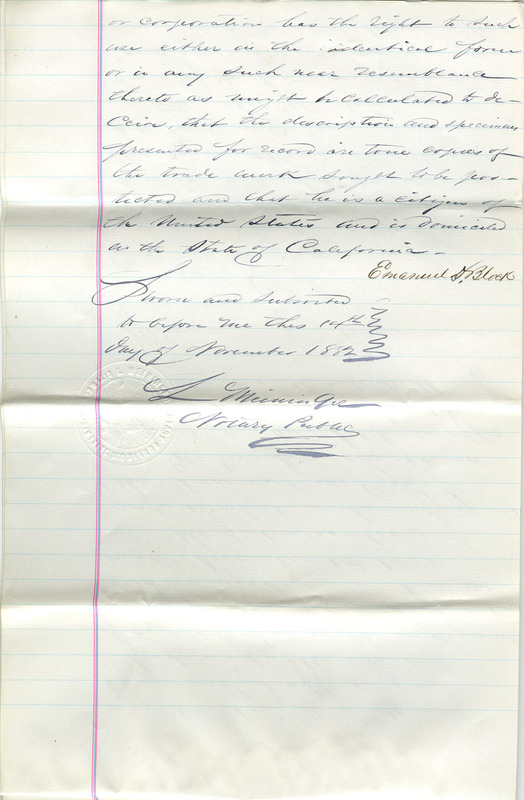 or corporation has the right to such
use either in the identical form
or in any such near resemblance
thereto as might be calculated to de-
ceive, that the description and specimens
presented for record are true copies of
the trade mark sought to be pro-
tected and that he is a citizen of
the United States and is domiciled
in the State of California -
Emanuel D. Block
Sworn and subscribed
to before me this 14th
day of November 1882
Notary Public